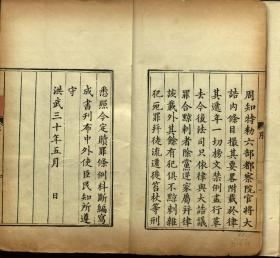 周知特勑六部都察院官將大
誥內條目撮其要畧附載於律
其遞年一切榜文禁例盡行革
去今後法司只依律與大誥議
罪合黥刺者除黨逆家屬幷律
該載外其餘有犯俱不黥刺雜
犯死罪幷徒流遷徙笞杖等刑
悉照今定贖罪條例科斷編寫
成書刊布中外使臣民知所遵
守
洪武三十年五月 日